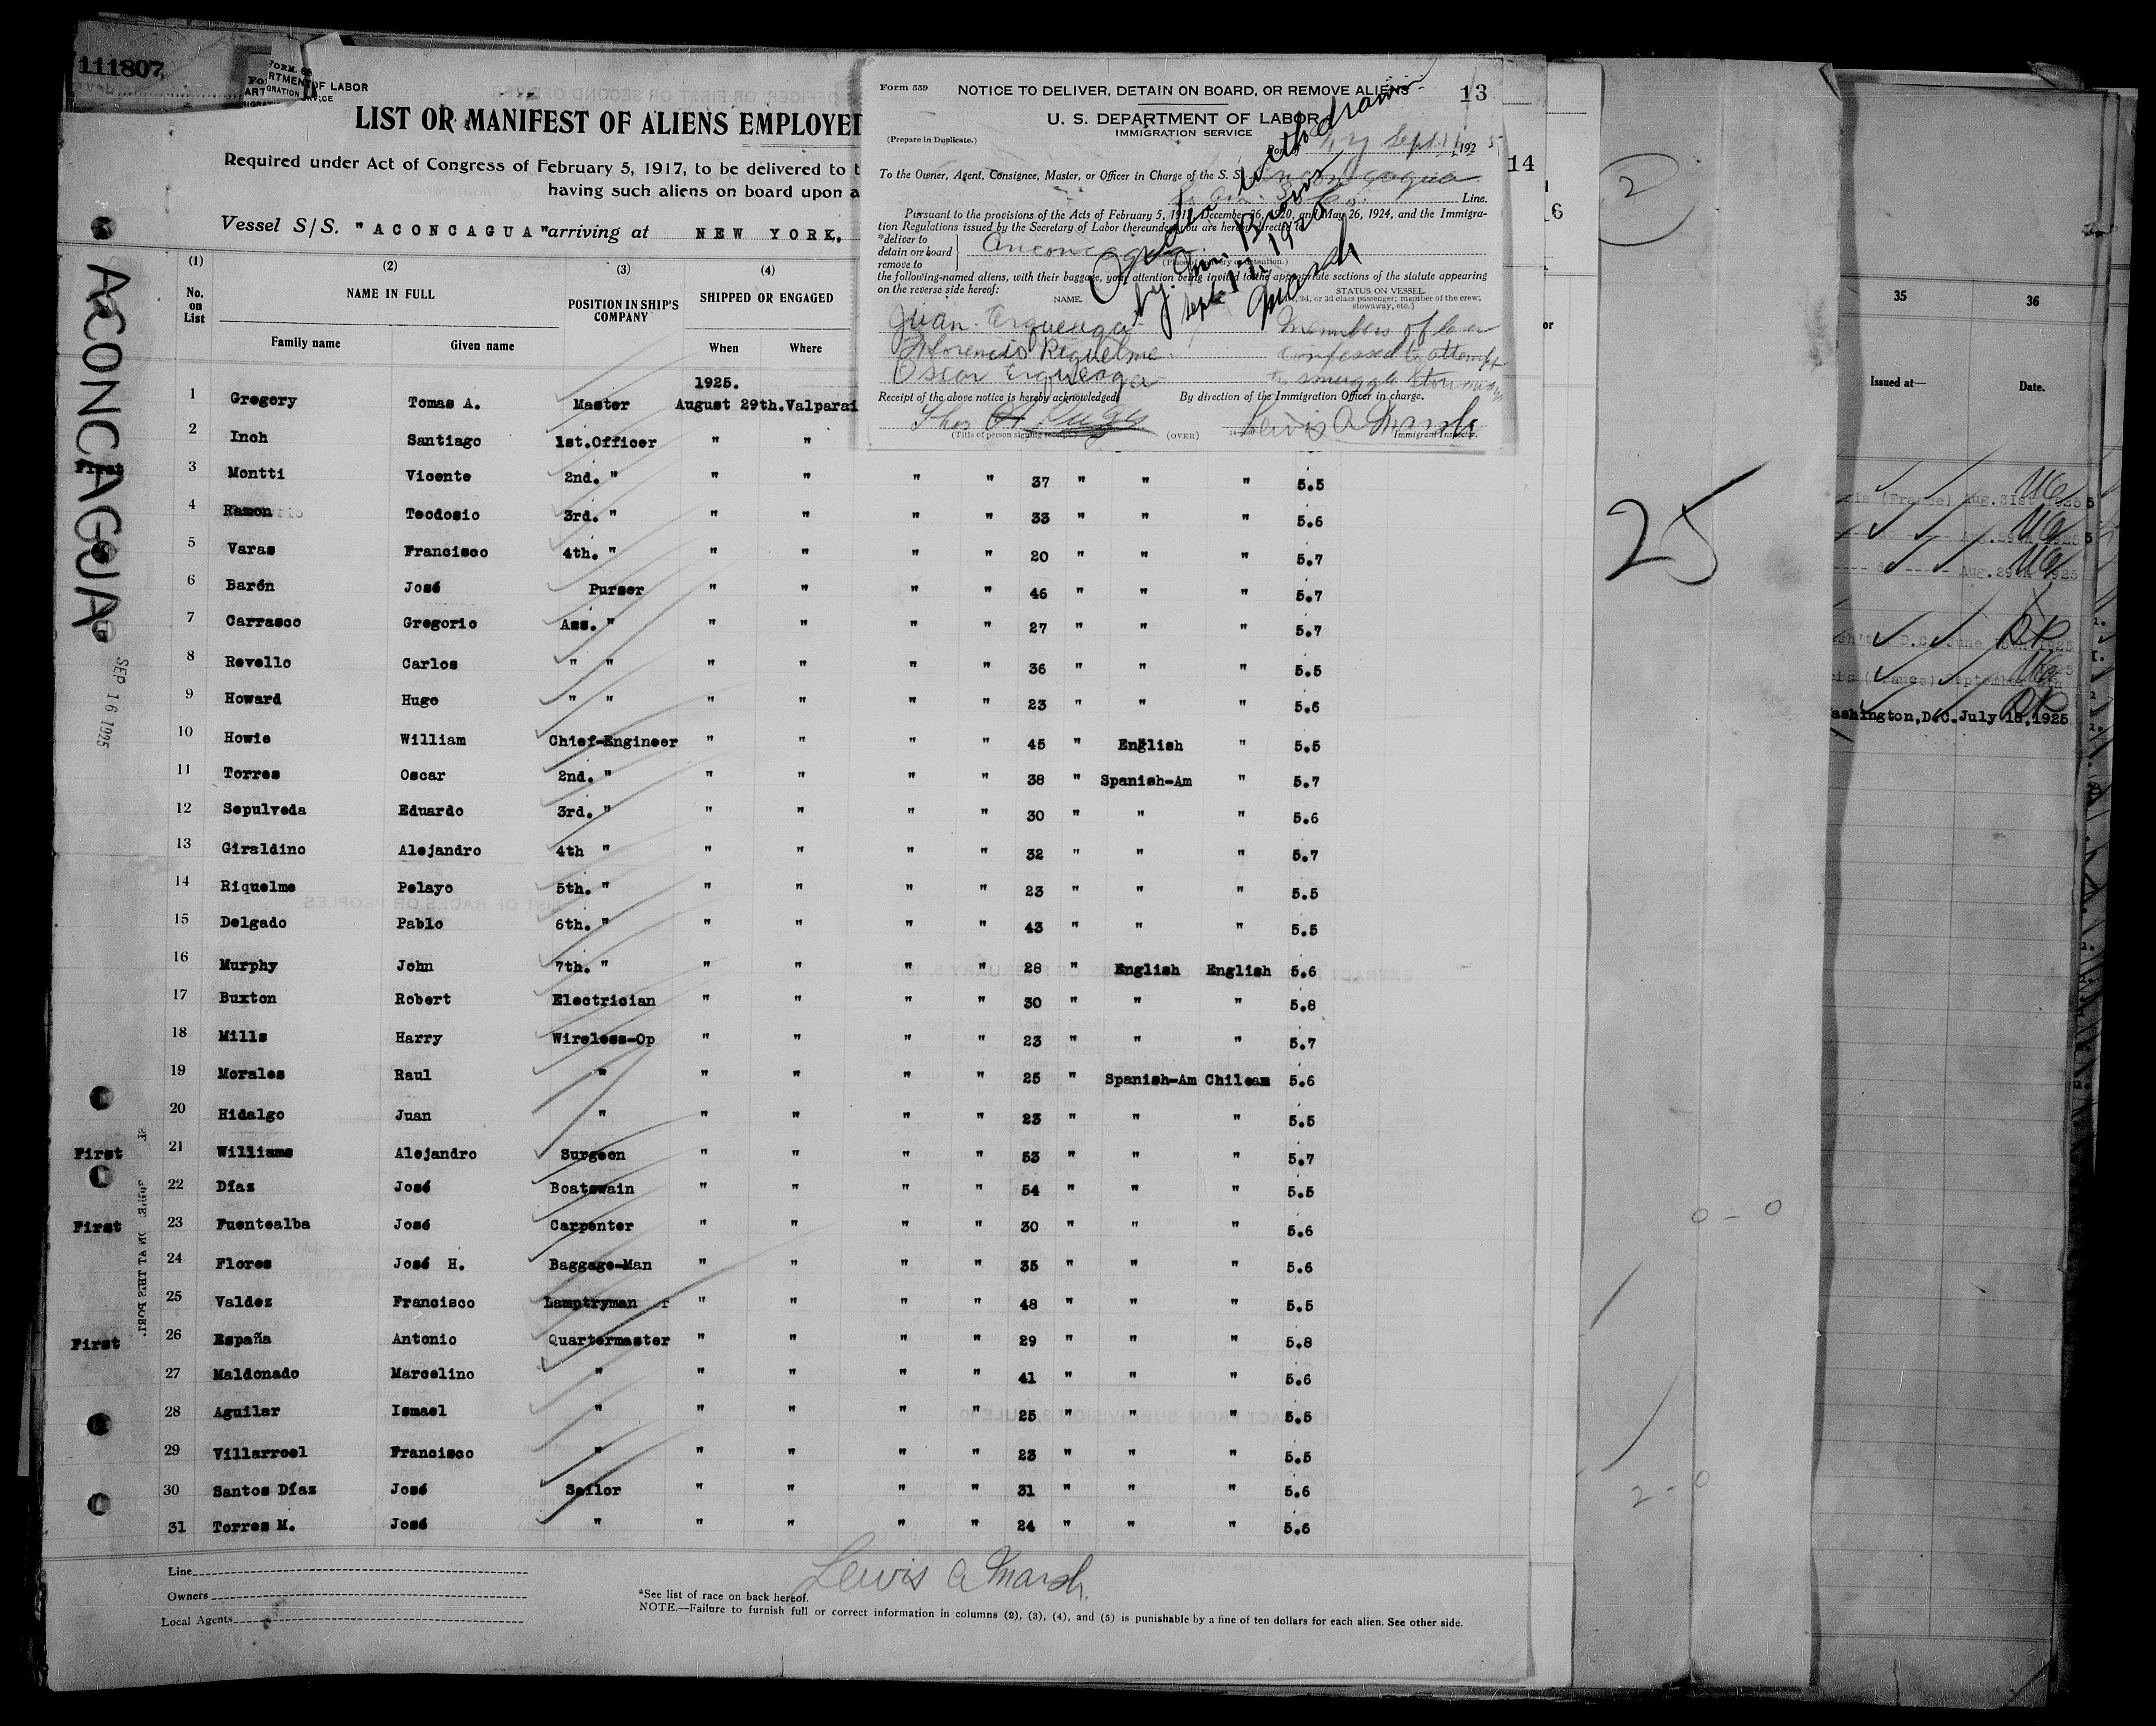 111807
FORM. 68
DEPARTMENT OF LABOR
LIST OR MANIFEST OF ALIENS EMPLOYED
Required under Act of Congress of February 5, 1917, to be delivered to t
having such aliens on board upon a
Vessel S/S. "ACONCAGUA" arriving at NEW YORK,
(1) (2) (3) (4)
No. on List NAME IN FULL POSITION IN SHIP'S COMPANY SHIPPED OR ENGAGED
Family name Given name When Where
1925.
1 Gregory Tomas A. Master August 29th. Valparai
2 Inch Santiago 1st.Officer " "
First 3 Montti Vicente 2nd. " " " " " 37 " " " 5.5
4 Ramon Teodosio 3rd. " " " " " 33 " " " 5.6
5 Varas Francisco 4th. " " " " " 20 " " " 5.7
6 Barón José Purser " " " " 46 " " " 5.7
7 Carrasco Gregorio Ass. " " " " " 27 " " " 5.7
8 Revello Carlos " " " " " " 36 " " " 5.5
9 Howard Hugo " " " " " " 23 " " " 5.6
10 Howie William Chief-Engineer " " " " 45 " English " 5.5
11 Torres Oscar 2nd. " " " " " 38 " Spanish-Am " 5.7
12 Sepulveda Eduardo 3rd. " " " " " 30 " " " 5.6
13 Giraldino Alejandro 4th " " " " " 32 " " " 5.7
14 Riquelme Pelayo 5th. " " " " " 23 " " " 5.5
15 Delgado Pablo 6th. " " " " " 43 " " " 5.5
16 Murphy John 7th. " " " " " 28 " English English 5.6
17 Buxton Robert Electrician " " " " 30 " " " 5.8
18 Mills Harry Wireless-Op " " " " 23 " " " 5.7
19 Morales Raul " " " " " 25 " Spanish-Am Chilean 5.6
20 Hidalgo Juan " " " " " 23 " " " 5.5
First 21 Williams Alejandro Surgeon " " " " 53 " " " 5.7
22 Díaz José Boatswain " " " " 54 " " " 5.5
First 23 Fuentealba José Carpenter " " " " 30 " " " 5.6
24 Flores José H. Baggage-Man " " " " 35 " " " 5.6
25 Valdez Francisco Lamptryman " " " " 48 " " " 5.5
First 26 España Antonio Quartermaster " " " " 29 " " " 5.8
27 Maldonado Marcelino " " " " " 41 " " " 5.6
28 Aguilar Ismael " " " " " 25 " " " 5.5
29 Villarroel Francisco " " " " " 23 " " " 5.5
30 Santos Díaz José Sailor " " " " 31 " " " 5.6
31 Torres M. José " " " " " 24 " " " 5.6
Lewis A Marsh
Line
Owners
Local Agents
*See list of race on back hereof.
NOTE.—Failure to furnish full or correct information in columns (2), (3), (4), and (5) is punishable by a fine of ten dollars for each alien. See other side.
ACONCAGUA
SEP 16 1925
Form 559
NOTICE TO DELIVER, DETAIN ON BOARD, OR REMOVE ALIENS
13
U. S. DEPARTMENT OF LABOR
IMMIGRATION SERVICE
(Prepare in Duplicate.)
Port of N Y Sept 1925
To the Owner, Agent, Consignee, Master, or Officer in Charge of the S. S. Anconcagua
Line.
Pursuant to the provisions of the Acts of February 5, 1917, December 26, 1920, and May 26, 1924, and the Immigra-
tion Regulations issued by the Secretary of Labor thereunder, you are hereby directed to
*deliver to
detain on board
remove to
Anconcagua
(Place of delivery or detention.)
the following-named aliens, with their baggage, your attention being invited to the appropriate sections of the statute appearing
on the reverse side hereof:
NAME. STATUS ON VESSEL.
(1st, 2d, or 3d class passenger; member of the crew; stowaway, etc.)
Juan Ergueaga Members of
Florencio Riquelme confessed to attempt
Oscar Ergueaga to smuggle stowaways
Receipt of the above notice is hereby acknowledged By direction of the Immigration Officer in charge.
Lewis A Marsh
(Title of person signing receipt.) (OVER) Immigrant Inspector.
Order withdrawn
by
Sept
Marsh
14
6
2
25
0 - 0
2 - 0
35 36
Issued at— Date.
ris (France) Aug.31st 1925
Aug.29th 1925
Aug.29th 1925
D.C. June 1925
ris (France) September
Washington,D.C. July 15,1925